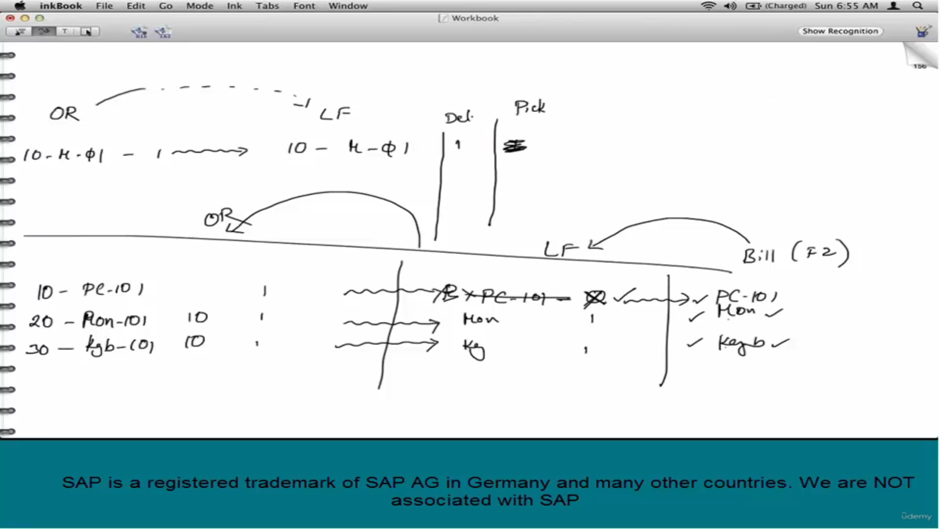 inkBook File Edit Go Mode Ink Tabs Font Window (Charged) Sun 6:55 AM
Workbook
T Show Recognition
156
OR LF Del. Pick
10-M-01 - 1 10 - M-01 1
OR
LF Bill (F2)
10 - PC-101 1 PC-101 - PC-101
20 - Mon-101 10 1 Mon 1 Mon
30 - Kyb-101 10 1 Key 1 Keyb
SAP is a registered trademark of SAP AG in Germany and many other countries. We are NOT
associated with SAP
ûdemy